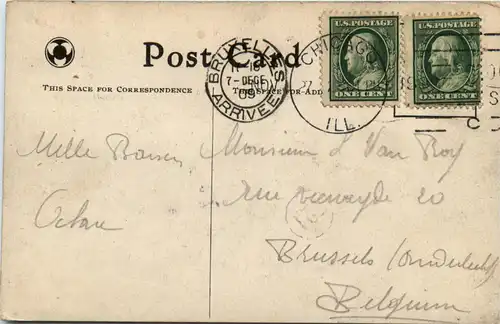 Post Card
THIS SPACE FOR CORRESPONDENCE
THIS SPACE FOR ADD
BRUXELLES
7-DECE
09
ARRIVEE
CHICAGO
ILL.
U.S. POSTAGE
ONE CENT
U.S. POSTAGE
ONE CENT
Mille Baisers
Octave
Monsieur J Van Roy
rue 20
Brussels
Belgium